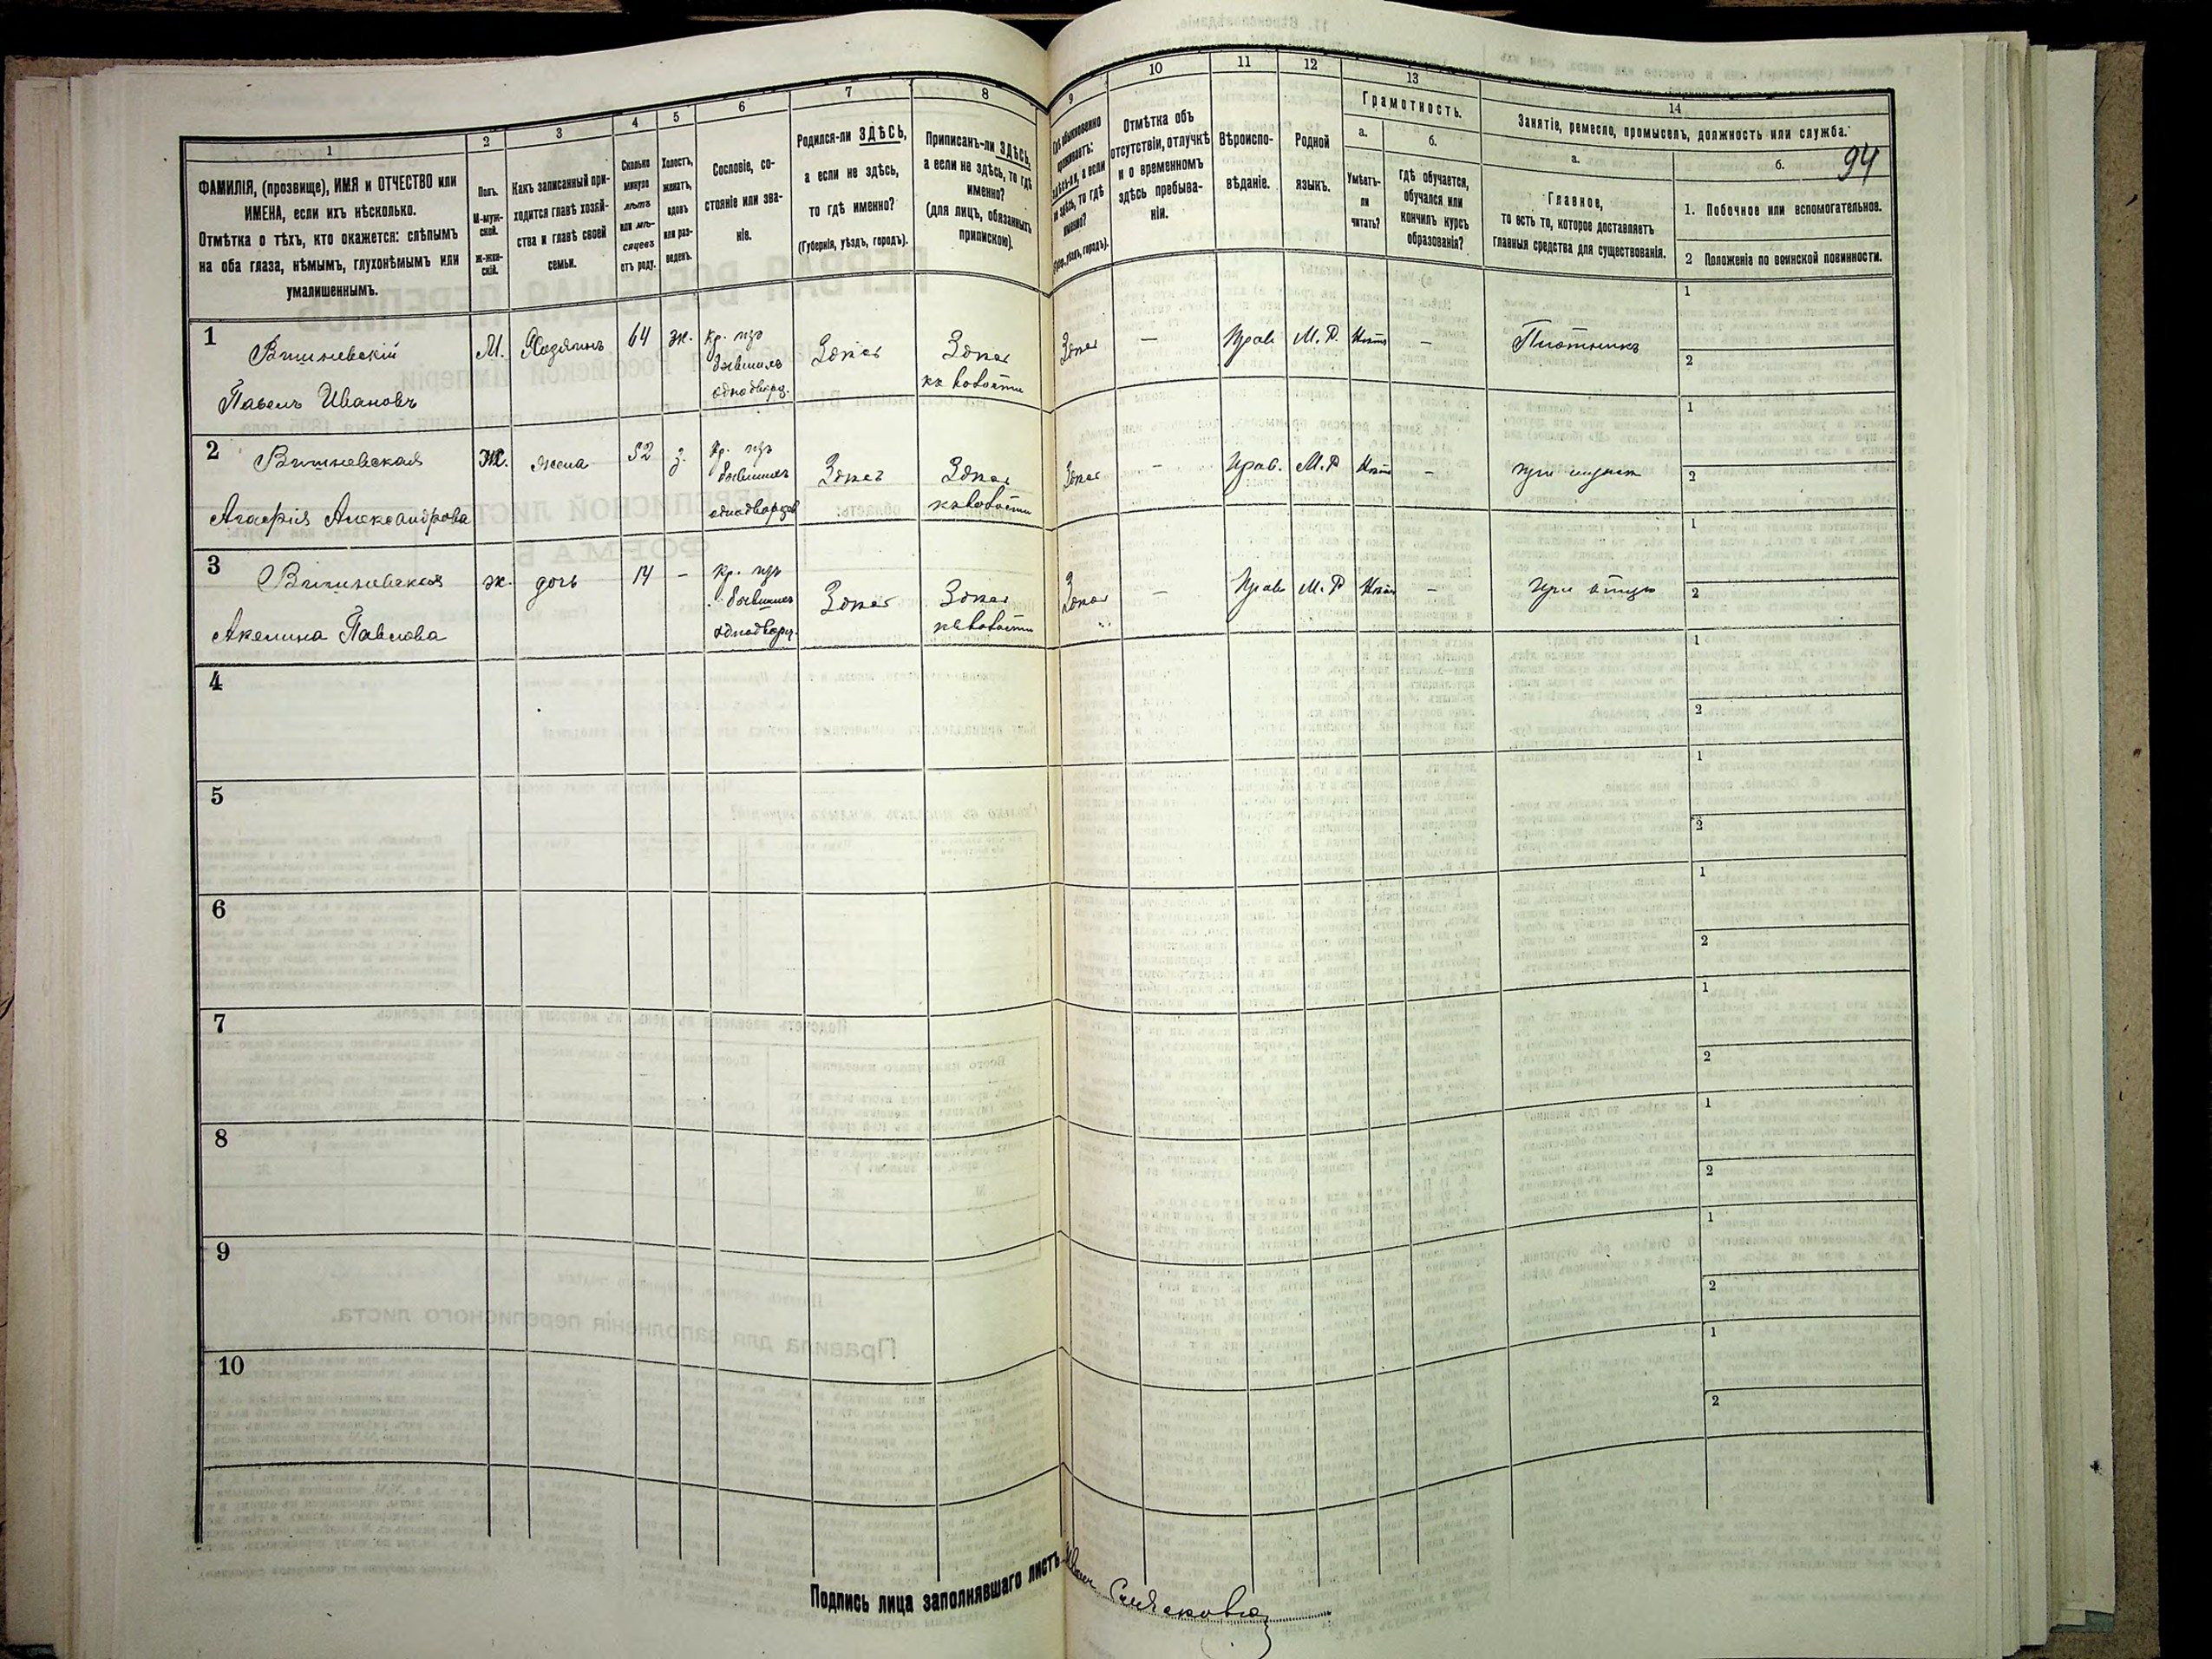 1
2
3
4
5
6
7
8
9
10
11
12
13
14
94
ФАМИЛІЯ, (прозвище), ИМЯ и ОТЧЕСТВО или
ИМЕНА, если ихъ нѣсколько.
Отмѣтка о тѣхъ, кто окажется: слѣпымъ
на оба глаза, нѣмымъ, глухонѣмымъ или
умалишеннымъ.
Полъ.
М-муж-
ской.
Ж-жен-
скій.
Какъ записанный при-
ходится главѣ хозяй-
ства и главѣ своей
семьи.
Сколько
минуло
лѣтъ
или мѣ-
сяцевъ
отъ роду.
Холостъ,
женатъ,
вдовъ
или раз-
веденъ.
Сословіе, со-
стояніе или зва-
ніе.
Родился-ли ЗДѢСЬ,
а если не здѣсь,
то гдѣ именно?
(Губернія, уѣздъ, городъ).
Приписанъ-ли ЗДѢСЬ,
а если не здѣсь, то гдѣ
именно?
(для лицъ, обязанныхъ
припискою).
Гдѣ обыкновенно
проживаетъ:
здѣсь-ли, а если
не здѣсь, то гдѣ
именно?
Отмѣтка объ
отсутствіи, отлучкѣ
и о временномъ
здѣсь пребыва-
ніи.
Вѣроиспо-
вѣданіе.
Родной
языкъ.
Грамотность.
а.
Умѣетъ-
ли
читать?
б.
гдѣ обучается,
обучался или
кончилъ курсъ
образованія?
Занятіе, ремесло, промыселъ, должность или служба.
а.
Главное,
то есть то, которое доставляетъ
главныя средства для существованія.
б.
1. Побочное или вспомогательное.
2 Положеніе по воинской повинности.
1
Вишневскій
Павелъ Ивановъ
М.
Хозяинъ
64
ж.
Кр. изъ
бывшихъ
однодворц.
Здѣсь
Здѣсь
Здѣсь
—
Прав.
М. Р.
Нѣтъ
—
Плотникъ
1
2
2
Вишневская
Агафія Александрова
Ж.
жена
52
з.
Кр. изъ
бывшихъ
однодворцев
Здѣсь
Здѣсь
Здѣсь
—
Прав.
М. Р
Нѣтъ
—
при мужѣ
1
2
3
Вишневская
Акелина Павлова
ж.
дочь
14
—
Кр. изъ
бывшихъ
однодворц.
Здѣсь
Здѣсь
Здѣсь
—
Прав
М. Р
Нѣтъ
—
при отцѣ
1
2
4
1
2
5
1
2
6
1
2
7
1
2
8
1
2
9
1
2
10
1
2
Подпись лица заполнявшаго листъ